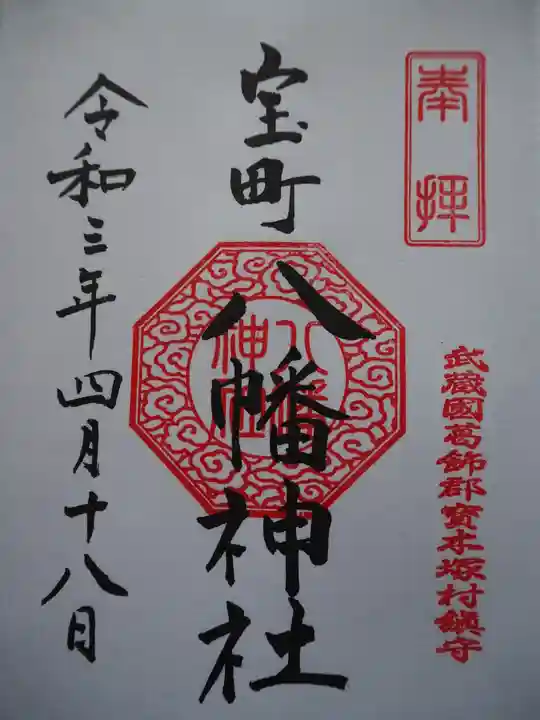 奉拝
武蔵國葛飾郡寳木塚村鎮守
宝町
八幡神社
令和三年四月十八日